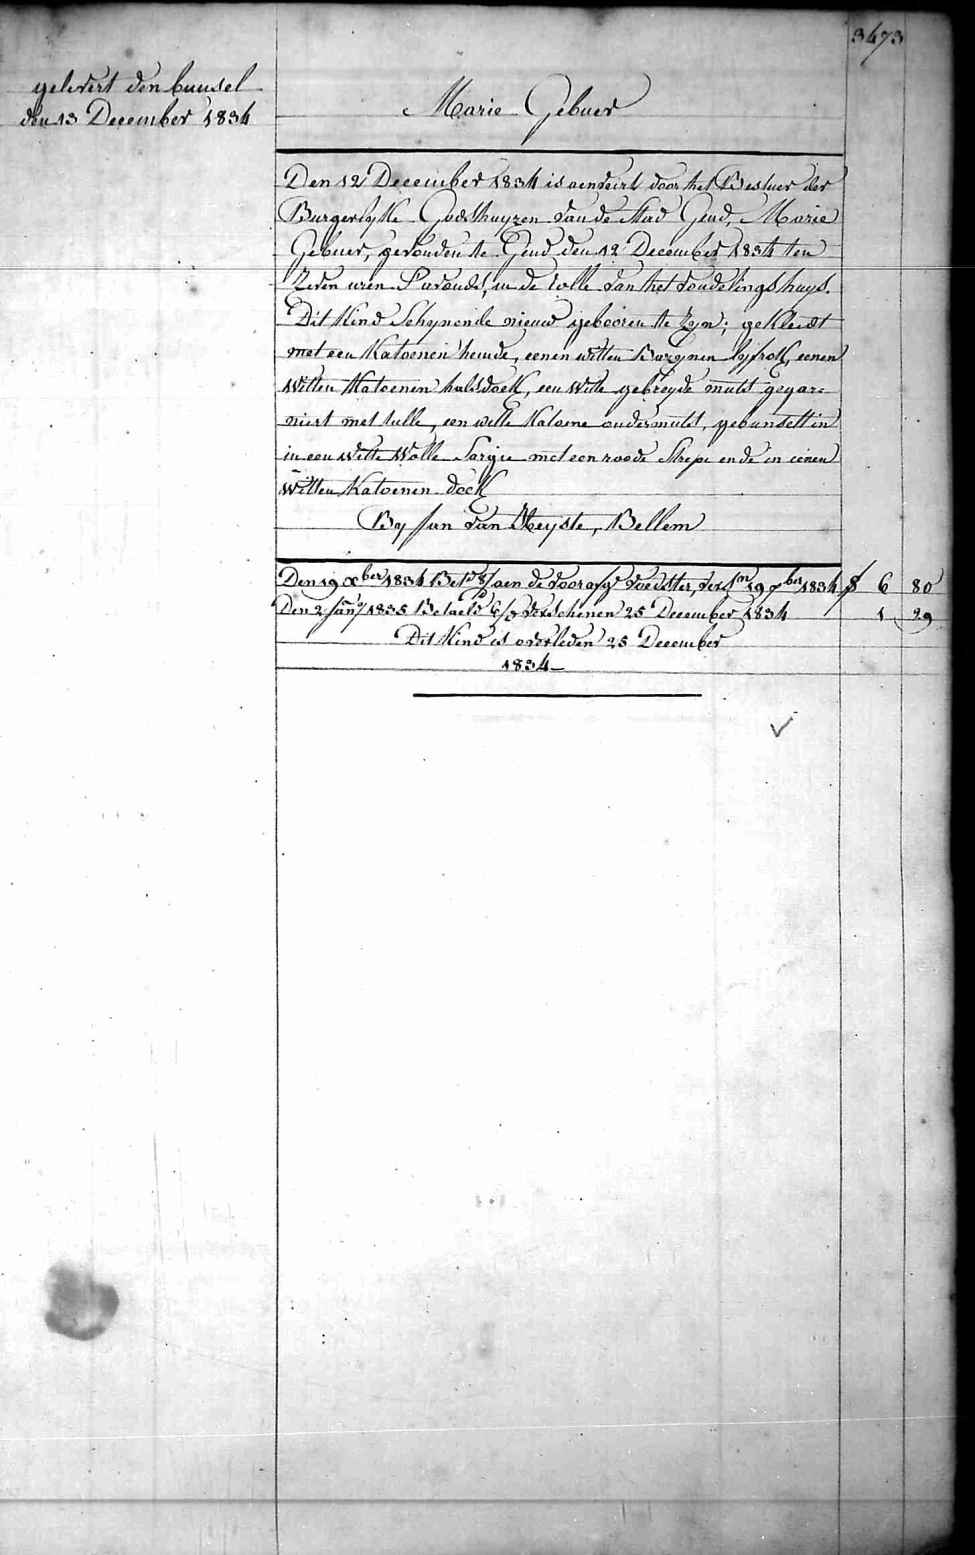 3673
gelevert den bunsel
den 13 December 1834
Marie Gebuer
Den 12 December 1834 is aenveirt door het Bestuer der
Burgerlyke Godshuyzen van de Stad Gend, Marie
Gebuer, gevonden te Gend den 12 December 1834 ten
Zeven uren S'avonds, in de rolle van het vondelingshuys.
Dit Kind Schynende nieuw gebooren te Zyn; gekleedt
met een Katoenen hemde, eenen witten Bazynen lyfrok, eenen
witten Katoenen halsdoek, een witte gebreyde muts gegar=
niert met tulle, een witte Katoene ondermuts, gebunselt in
in een witte Wolle Sargie met een roode Strepe ende in eenen
witten Katoenen doek
By Jan van Heyste, Bellem
Den 19 Xber 1834 Bet. aen de voorasz. voedster, vers. 19 ber 1834 6 80
Den 2 Jany 1835 Betaeld verschenen 25 December 1834 1 29
Dit Kind is overleden 25 December
1834